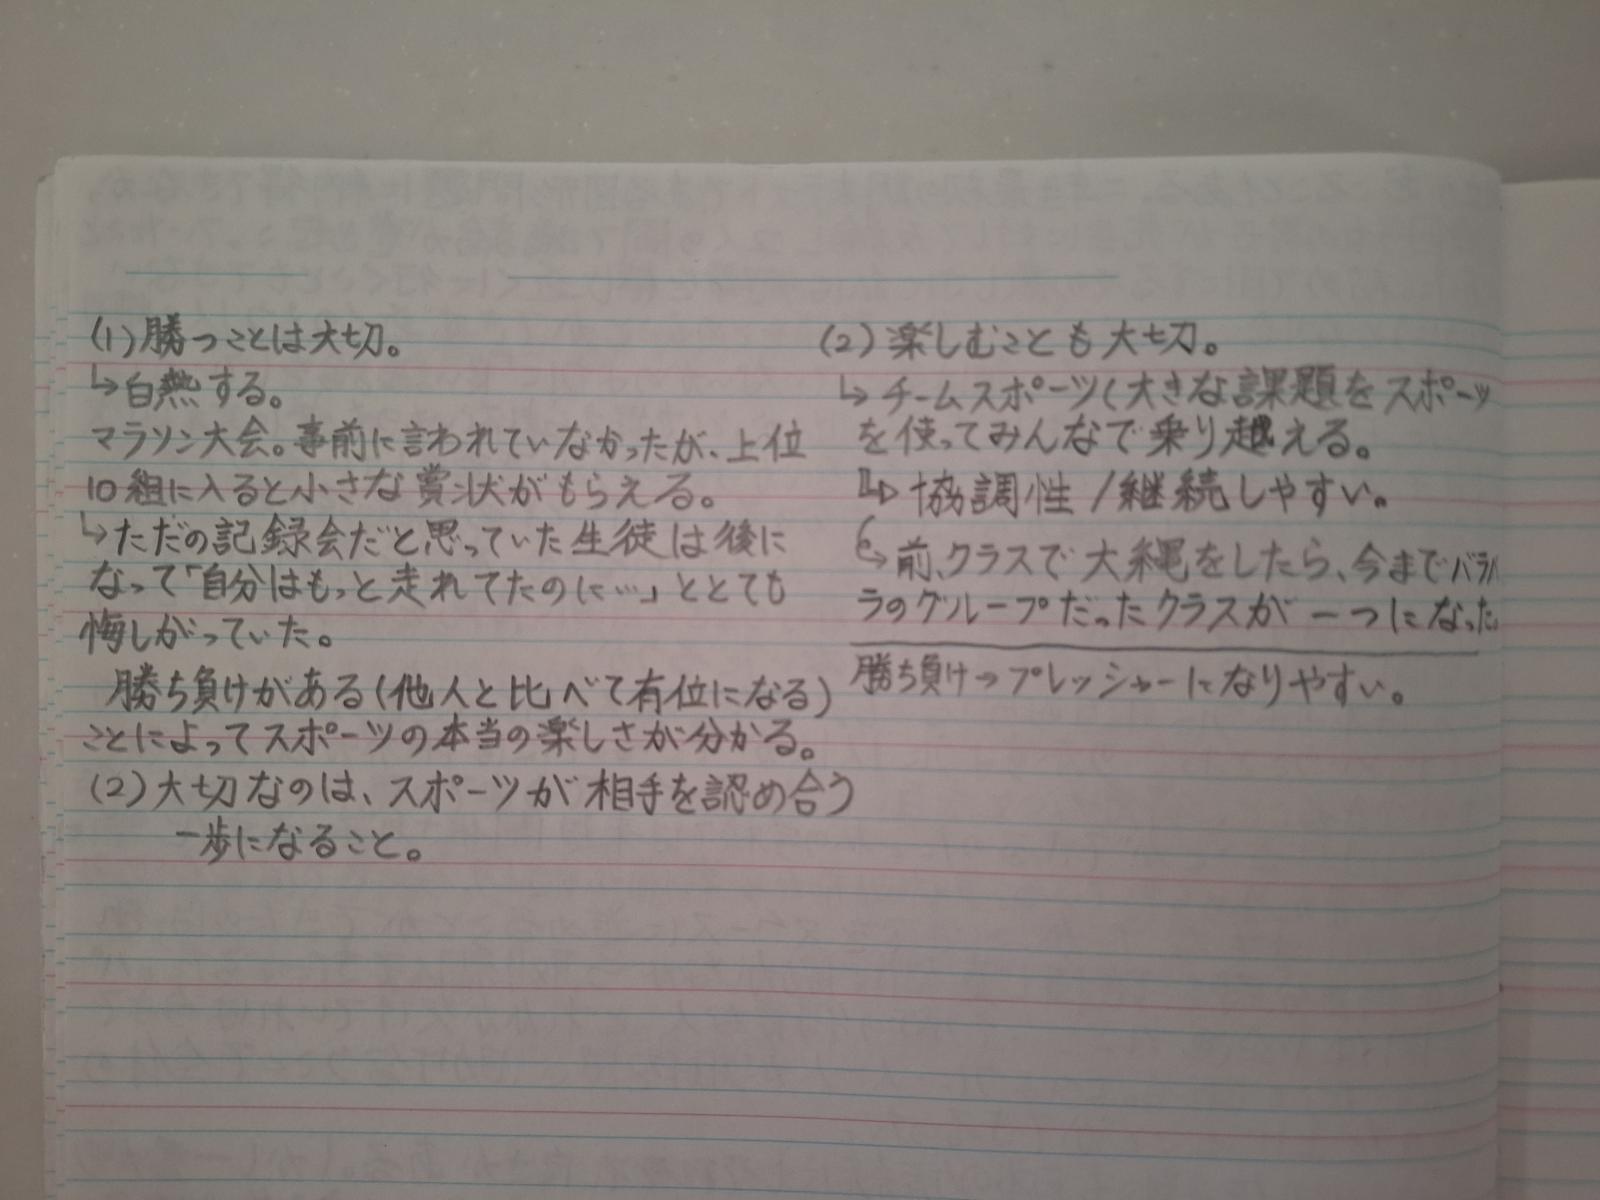 (1)勝つことは大切。
↳白熱する。
マラソン大会。事前に言われていなかったが、上位
10組に入ると小さな賞状がもらえる。
↳ただの記録会だと思っていた生徒は後に
なって「自分はもっと走れてたのに…」ととても
悔しがっていた。
勝ち負けがある(他人と比べて有位になる)
ことによってスポーツの本当の楽しさが分かる。
(2)大切なのは、スポーツが相手を認め合う
一歩になること。
(2)楽しむことも大切。
↳チームスポーツ(大きな課題をスポーツ
を使ってみんなで乗り越える。
⇒協調性/継続しやすい。
↳前、クラスで大縄をしたら、今までバラバ
ラのグループだったクラスが一つになった
勝ち負け→プレッシャーになりやすい。